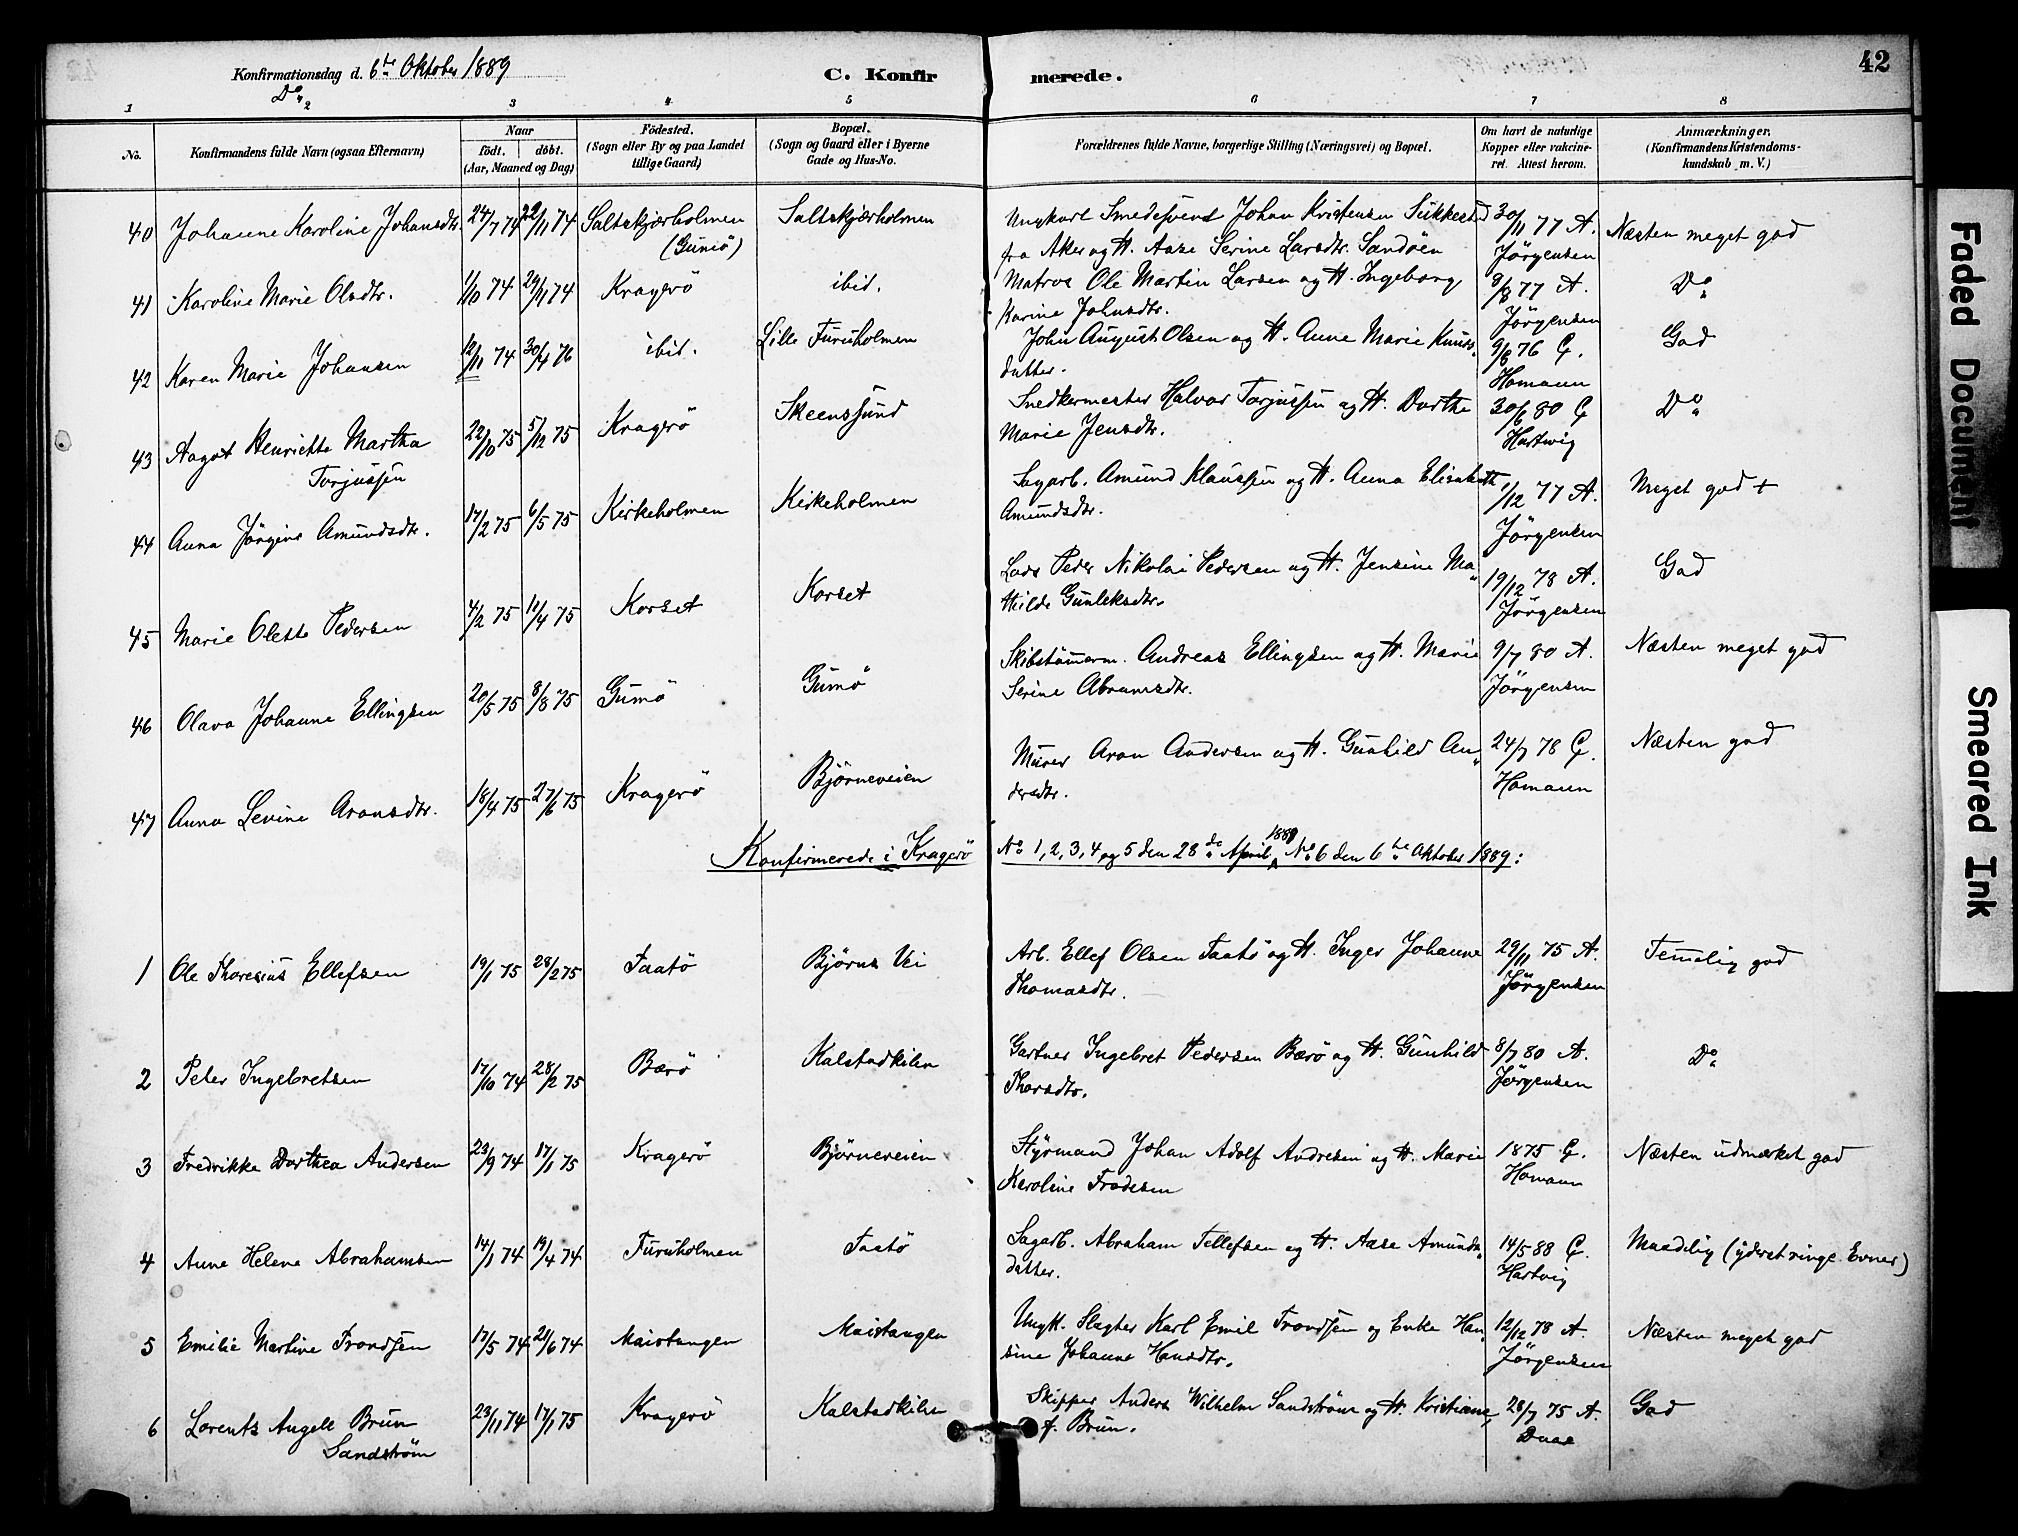 Konfirmationsdag d. 6te Oktober 1889
Do
C. Konfirmerede.
42
1 2 3 4 5 6 7 8
No.
Konfirmandens fulde Navn (ogsaa Efternavn)
Naar
födt. döbt.
(Aar, Maaned og Dag)
Födested.
(Sogn eller By og paa Landet
tillige Gaard)
Bopæl.
(Sogn og Gaard eller i Byerne
Gade og Hus-No.
Forældrenes fulde Navne, borgerlige Stilling (Næringsvei) og Bopæl.
Om havt de naturlige
Kopper eller vakcine-
ret. Attest herom.
Anmærkninger.
(Konfirmandens Kristendoms-
kundskab m. V.)
40 Johanne Karoline Johansdtr. 24/7 74 22/11 74 Saltskjærholmen Saltskjærholmen Ungkarl Smedesvend Johan Kristensen Sukkestad 30/11 77 A. Næsten meget god
(Gumö) fra Aker og H. Aase Serine Larsdtr. Sandöen Jörgensen
41 Karoline Marie Olsdtr. 1/10 74 29/11 74 Kragerö ibid. Matros Ole Martin Larsen og H. Ingeborg 8/8 77 A. Do
Karine Johnsdtr. Jörgensen
42 Karen Marie Johansen 12/11 74 30/4 76 ibid. Lille Furuholmen John August Olsen og H. Anne Marie Knuds- 9/8 76 C. God
datter. Homann
43 Aagot Henriette Martha 22/10 75 5/12 75 Kragerö Skeenssund Snedkermester Halvor Torjussen og H. Dorthe 30/6 80 C Do
Torjussen Marie Jensdtr. Hartwig
44 Anna Jörgine Amundsdtr. 17/2 75 6/5 75 Kirkeholmen Kirkeholmen Sagarb. Amund Klaussen og H. Anna Elisabeth 1/12 77 A. Meget god +
Amundsdtr. Jörgensen
45 Marie Olette Pedersen 4/2 75 11/4 75 Korset Korset Lods Peder Nikolai Pedersen og H. Jensine Ma- 19/12 78 A. God
thilde Gunleksdtr. Jörgensen
46 Olava Johanne Ellingsen 20/5 75 8/8 75 Gumö Gumö Skibstömerm. Andreas Ellingsen og H. Marie 9/7 80 A. Næsten meget god
Serine Abramsdtr. Jörgensen
47 Anna Levine Aronsdtr. 18/4 75 27/6 75 Kragerö Björneveien Murer Aron Andersen og H. Gunhild An- 24/7 78 C. Næsten god
dersdtr. Homann
Konfirmerede i Kragerö No 1, 2, 3, 4 og 5 den 28de April 1889, No 6 den 6te Oktober 1889:
1 Ole Thoresius Ellefsen 19/1 75 28/2 75 Taatö Björns Vei Arb. Ellef Olsen Taatö og H. Inger Johanne 29/11 75 A. Temelig god
Thomasdtr. Jörgensen
2 Peter Ingebretsen 17/10 74 28/2 75 Bærö Kalstadkilen Gartner Ingebret Pedersen Bærö og H. Gunhild 8/7 80 A. Do
Thorsdtr. Jörgensen
3 Fredrikke Dorthea Andersen 23/9 74 17/1 75 Kragerö Björneveien Styrmand Johan Adolf Andresen og H. Marie 1875 C. Næsten udmærket god
Karoline Frodesen Homann
4 Anne Helene Abrahamsen 14/1 74 19/4 74 Furuholmen Taatö Sagarb. Abraham Tellefsen og H. Aase Amunds- 14/5 88 C. Maadelig (yderst ringe Evner)
datter. Hartvig
5 Emilie Martine Trondsen 17/5 74 21/6 74 Maistangen Maistangen Ungk. Slagter Karl Emil Trondsen og Enke Han- 12/12 78 A. Næsten meget god
sine Johanne Hansdtr. Jörgensen
6 Lorents Angell Brun 23/11 74 17/1 75 Kragerö Kalstadkilen Skipper Anders Wilhelm Sandström og H. Kristiane 28/7 75 A. God
Sandström f. Brun. Duae
Faded Document
Smeared Ink